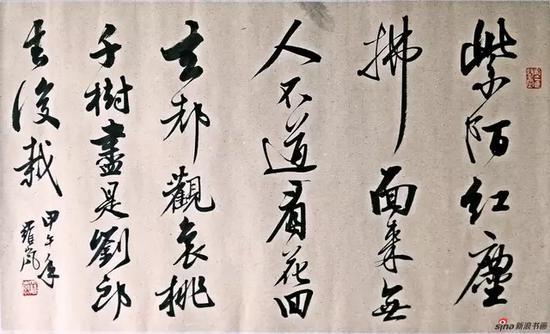 紫陌红塵
拂面来無
人不道看花回
玄都觀裏桃
千樹盡是劉郎
去後栽
甲午年
羅岚
sina新浪书画